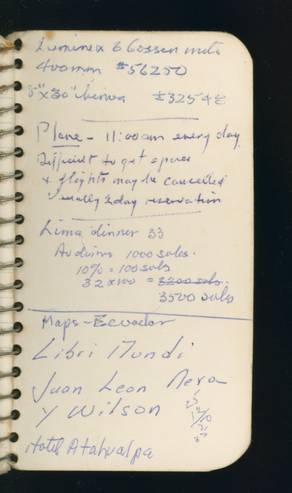 400mm $56250
Plane - 11:00am every day
Difficult to get space
& flights may be cancelled
usually 2 day reservation
Lima dinner 33
1000 soles.
10% = 100 sols
32 x 100 = 3200 sols.
3500 sols
Maps - Ecuador
Libri Mundi
Juan Leon Mera
y Wilson
Hotel Atahualpa